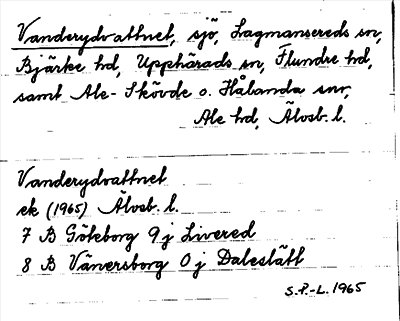 Vanderydvattnet, sjö, Lagmansereds sn,
Bjärke hd, Upphärads sn, Flundre hd,
samt Ale-Skövde o. Hålanda snr,
Ale hd, Älvsb. l.
Vanderydvattnet
ek (1965) Älvsb. l.
7 B Göteborg 9 j Livered
8 B Vänersborg 0 j Daleslätt
S.P.-L. 1965